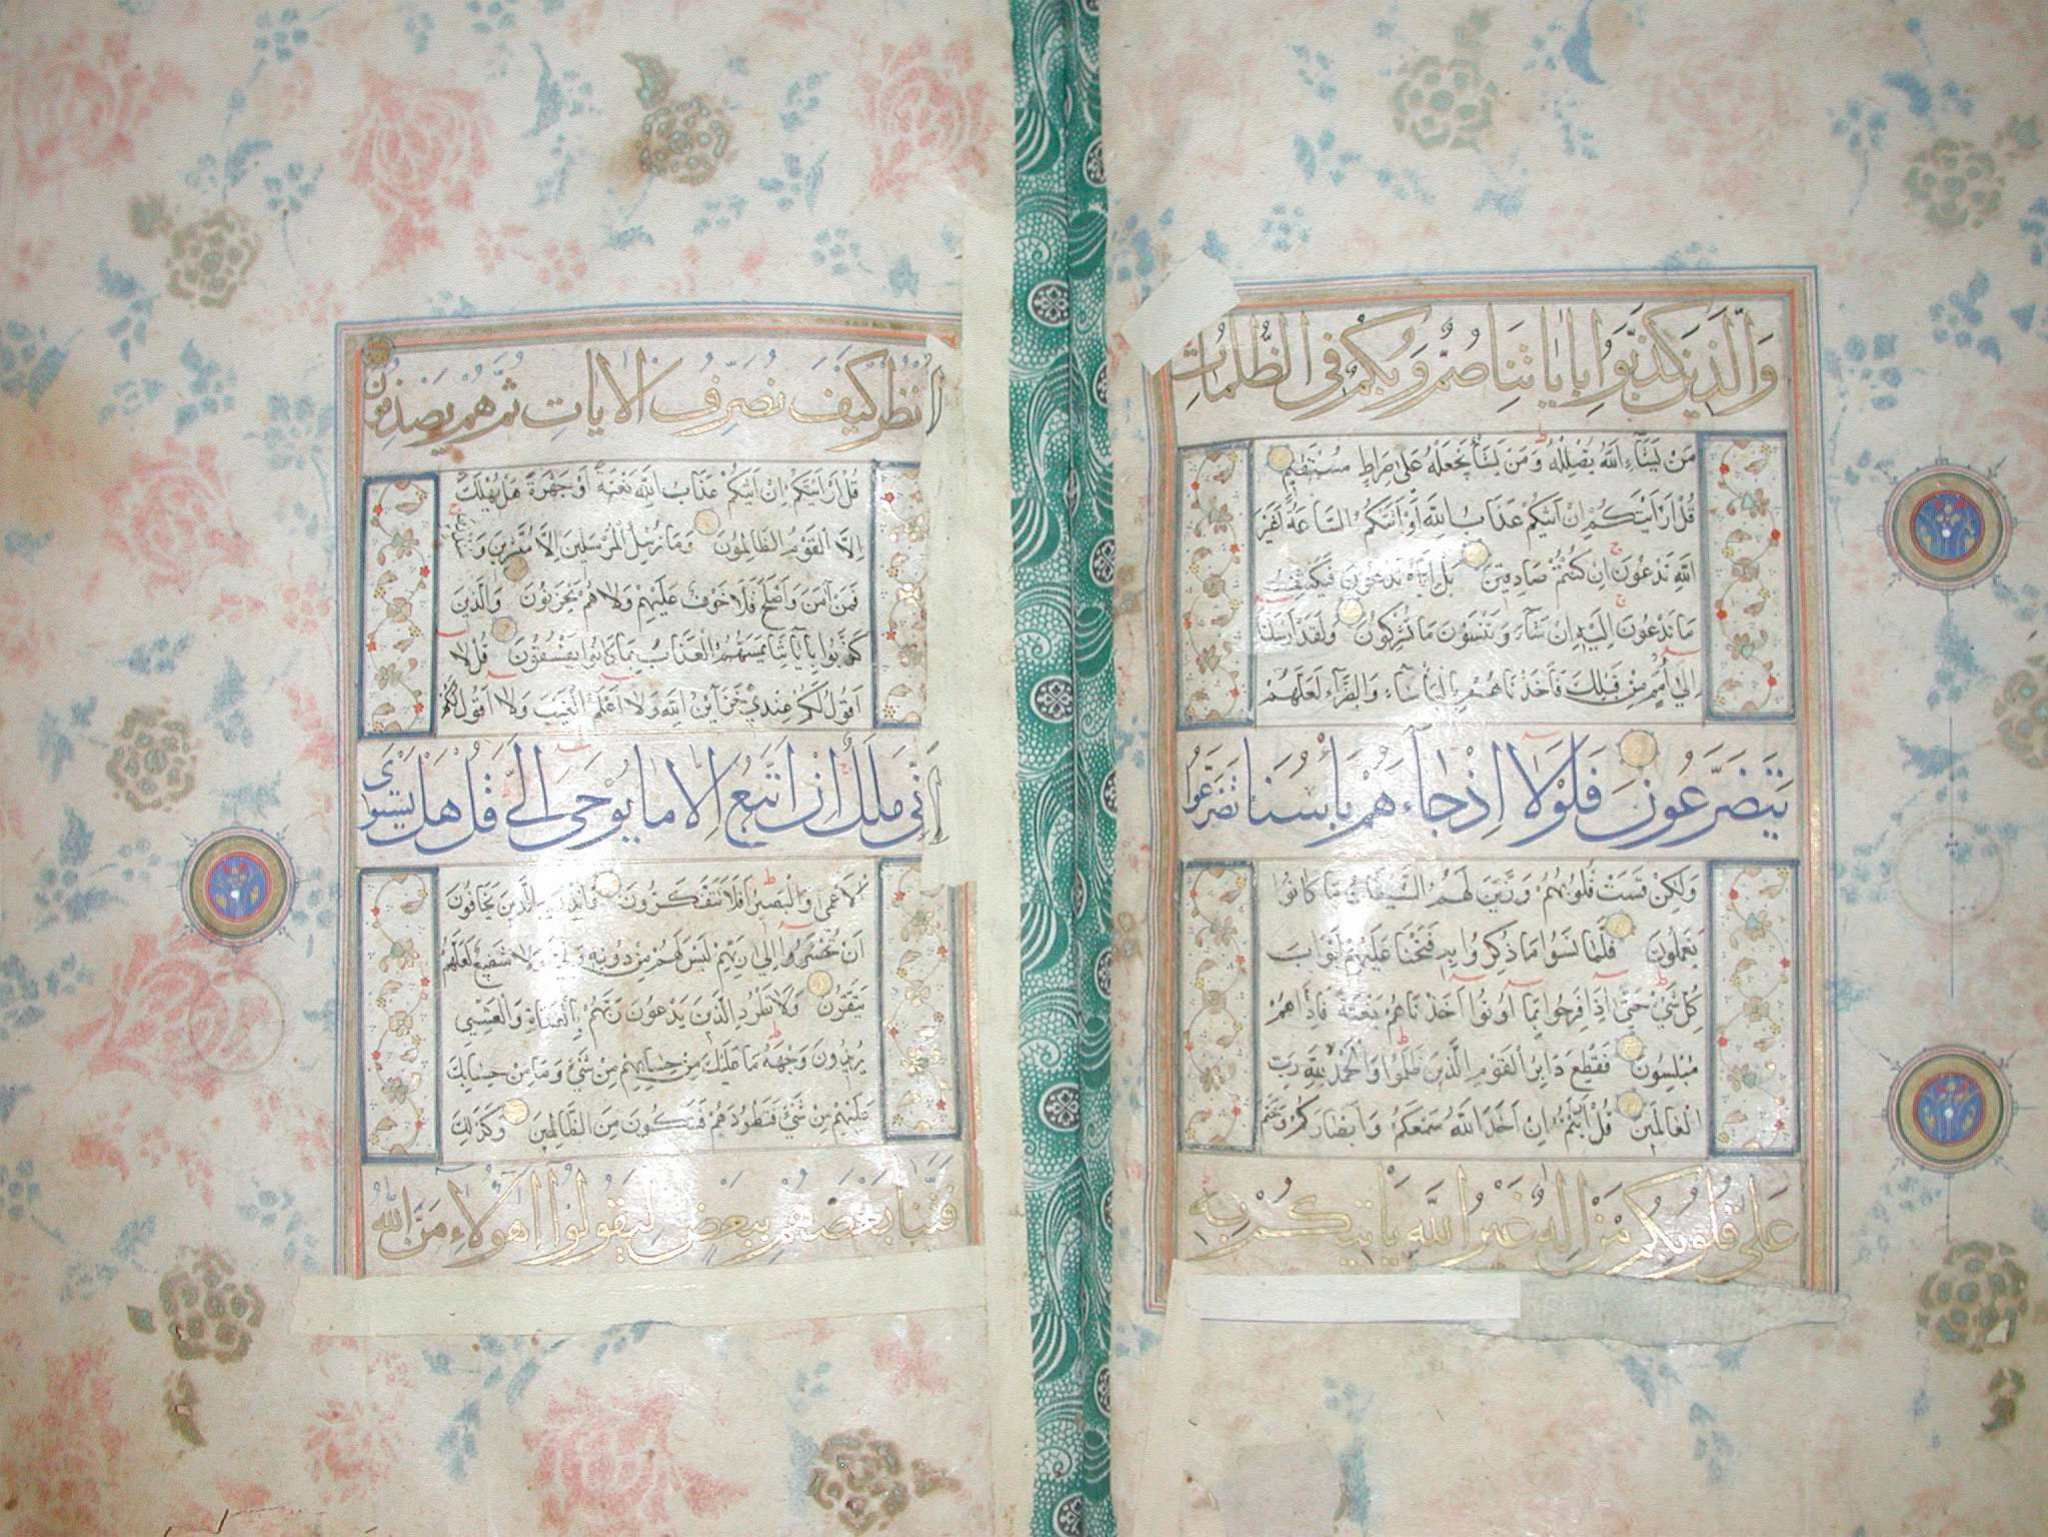 وَالَّذِينَ كَذَّبُوا بِآيَاتِنَا صُمٌّ وَبُكْمٌ فِي الظُّلُمَاتِ
مَنْ يَشَاءِ اللَّهُ يُضْلِلْهُ وَمَنْ يَشَأْ يَجْعَلْهُ عَلَىٰ صِرَاطٍ مُسْتَقِيمٍ
قُلْ أَرَأَيْتَكُمْ إِنْ أَتَيٰكُمْ عَذَابُ اللَّهِ أَوْ أَتَتْكُمُ السَّاعَةُ أَغَيْرَ
اللَّهِ تَدْعُونَ إِنْ كُنْتُمْ صَادِقِينَ بَلْ إِيَّاهُ تَدْعُونَ فَيَكْشِفُ
مَا تَدْعُونَ إِلَيْهِ إِنْ شَاءَ وَتَنْسَوْنَ مَا تُشْرِكُونَ وَلَقَدْ أَرْسَلْنَا
إِلَىٰ أُمَمٍ مِنْ قَبْلِكَ فَأَخَذْنَاهُمْ بِالْبَأْسَاءِ وَالضَّرَّاءِ لَعَلَّهُمْ
يَتَضَرَّعُونَ فَلَوْلَا إِذْ جَاءَهُمْ بَأْسُنَا تَضَرَّعُوا
وَلَٰكِنْ قَسَتْ قُلُوبُهُمْ وَزَيَّنَ لَهُمُ الشَّيْطَانُ مَا كَانُوا
يَعْمَلُونَ فَلَمَّا نَسُوا مَا ذُكِّرُوا بِهِ فَتَحْنَا عَلَيْهِمْ أَبْوَابَ
كُلِّ شَيْءٍ حَتَّىٰ إِذَا فَرِحُوا بِمَا أُوتُوا أَخَذْنَاهُمْ بَغْتَةً فَإِذَا هُمْ
مُبْلِسُونَ فَقُطِعَ دَابِرُ الْقَوْمِ الَّذِينَ ظَلَمُوا وَالْحَمْدُ لِلَّهِ رَبِّ
الْعَالَمِينَ قُلْ أَرَأَيْتُمْ إِنْ أَخَذَ اللَّهُ سَمْعَكُمْ وَأَبْصَارَكُمْ وَخَتَمَ
عَلَىٰ قُلُوبِكُمْ مَنْ إِلَٰهٌ غَيْرُ اللَّهِ يَأْتِيكُمْ بِهِ
انْظُرْ كَيْفَ نُصَرِّفُ الْآيَاتِ ثُمَّ هُمْ يَصْدِفُونَ
قُلْ أَرَأَيْتَكُمْ إِنْ أَتَيٰكُمْ عَذَابُ اللَّهِ بَغْتَةً أَوْ جَهْرَةً هَلْ يُهْلَكُ
إِلَّا الْقَوْمُ الظَّالِمُونَ وَمَا نُرْسِلُ الْمُرْسَلِينَ إِلَّا مُبَشِّرِينَ وَ
فَمَنْ آمَنَ وَأَصْلَحَ فَلَا خَوْفٌ عَلَيْهِمْ وَلَا هُمْ يَحْزَنُونَ وَالَّذِينَ
كَذَّبُوا بِآيَاتِنَا يَمَسُّهُمُ الْعَذَابُ بِمَا كَانُوا يَفْسُقُونَ قُلْ لَا
أَقُولُ لَكُمْ عِنْدِي خَزَائِنُ اللَّهِ وَلَا أَعْلَمُ الْغَيْبَ وَلَا أَقُولُ لَكُمْ
إِنِّي مَلَكٌ إِنْ أَتَّبِعُ إِلَّا مَا يُوحَىٰ إِلَيَّ قُلْ هَلْ يَسْتَوِي
الْأَعْمَىٰ وَالْبَصِيرُ أَفَلَا تَتَفَكَّرُونَ وَأَنْذِرْ بِهِ الَّذِينَ يَخَافُونَ
أَنْ يُحْشَرُوا إِلَىٰ رَبِّهِمْ لَيْسَ لَهُمْ مِنْ دُونِهِ وَلِيٌّ وَلَا شَفِيعٌ لَعَلَّهُمْ
يَتَّقُونَ وَلَا تَطْرُدِ الَّذِينَ يَدْعُونَ رَبَّهُمْ بِالْغَدَاةِ وَالْعَشِيِّ
يُرِيدُونَ وَجْهَهُ مَا عَلَيْكَ مِنْ حِسَابِهِمْ مِنْ شَيْءٍ وَمَا مِنْ حِسَابِكَ
عَلَيْهِمْ مِنْ شَيْءٍ فَتَطْرُدَهُمْ فَتَكُونَ مِنَ الظَّالِمِينَ وَكَذَٰلِكَ
فَتَنَّا بَعْضَهُمْ بِبَعْضٍ لِيَقُولُوا أَهَٰؤُلَاءِ مَنَّ اللَّهُ